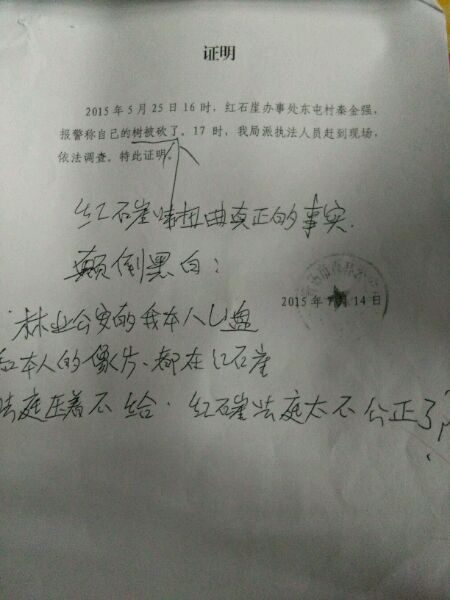 证明
2015年5月25日16时，红石崖办事处东屯村秦金强，
报警称自己的树被砍了。17时，我局派执法人员赶到现场，
依法调查。特此证明。
红石崖 扭曲真正的事实.
颠倒黑白：
2015年7月14日
林业公安的我本人U盘
和本人的像片、都在红石崖
法庭压着不给. 红石崖法庭太不公正了